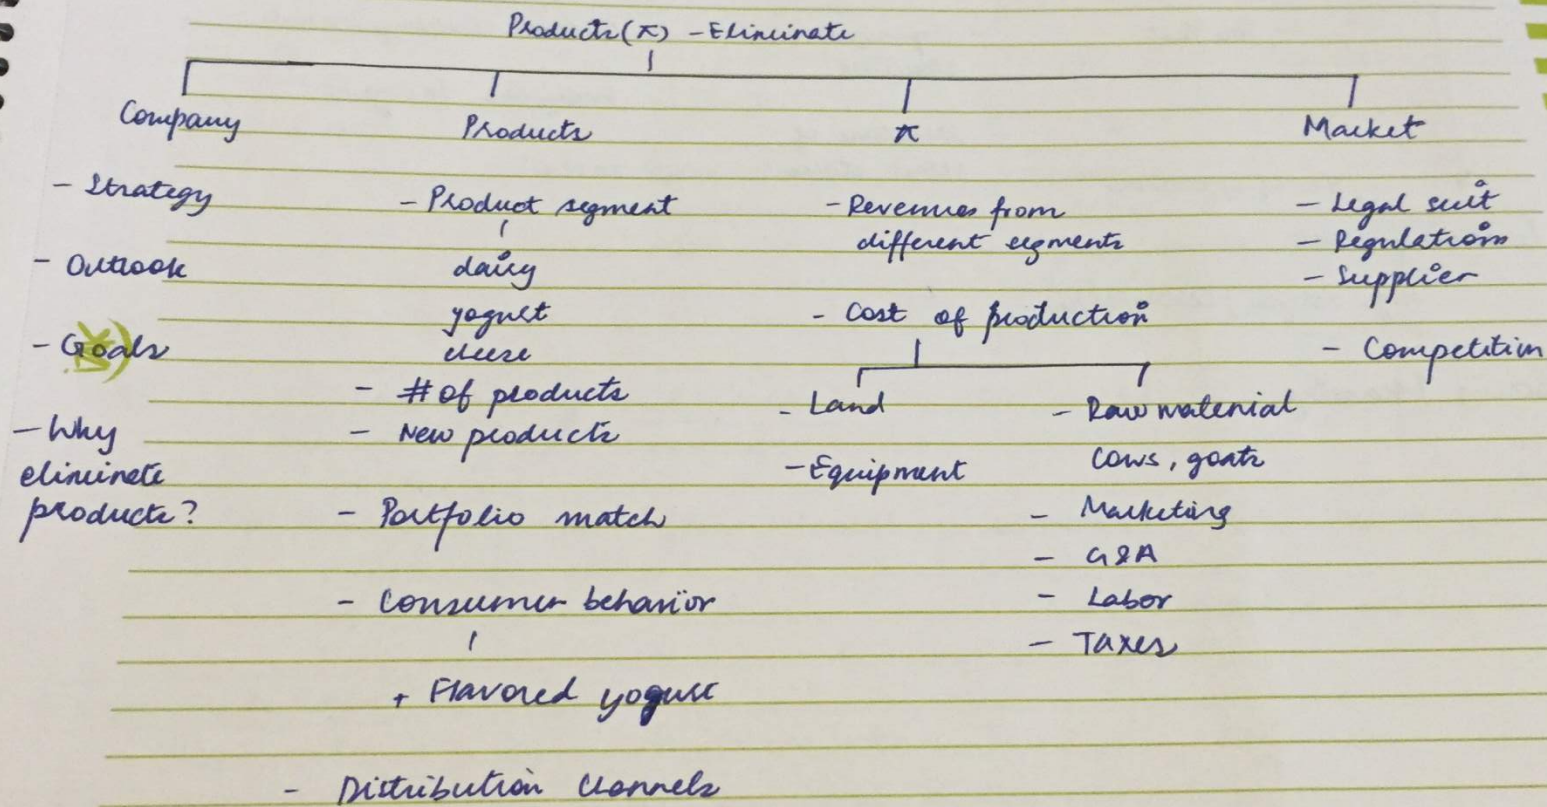 Products (π) - Eliminate
Company
Products
π
Market
- Strategy
- Outlook
- Goals
- Why
eliminate
products?
- Product segment
dairy
yogurt
cheese
- # of products
- New products
- Portfolio match
- Consumer behavior
+ Flavored yogurt
- Distribution Channels
- Revenues from
different segments
- Cost of production
- Land
- Equipment
- Raw material
cows, goats
- Marketing
- G&A
- Labor
- Taxes
- Legal suit
- Regulations
- Supplier
- Competition